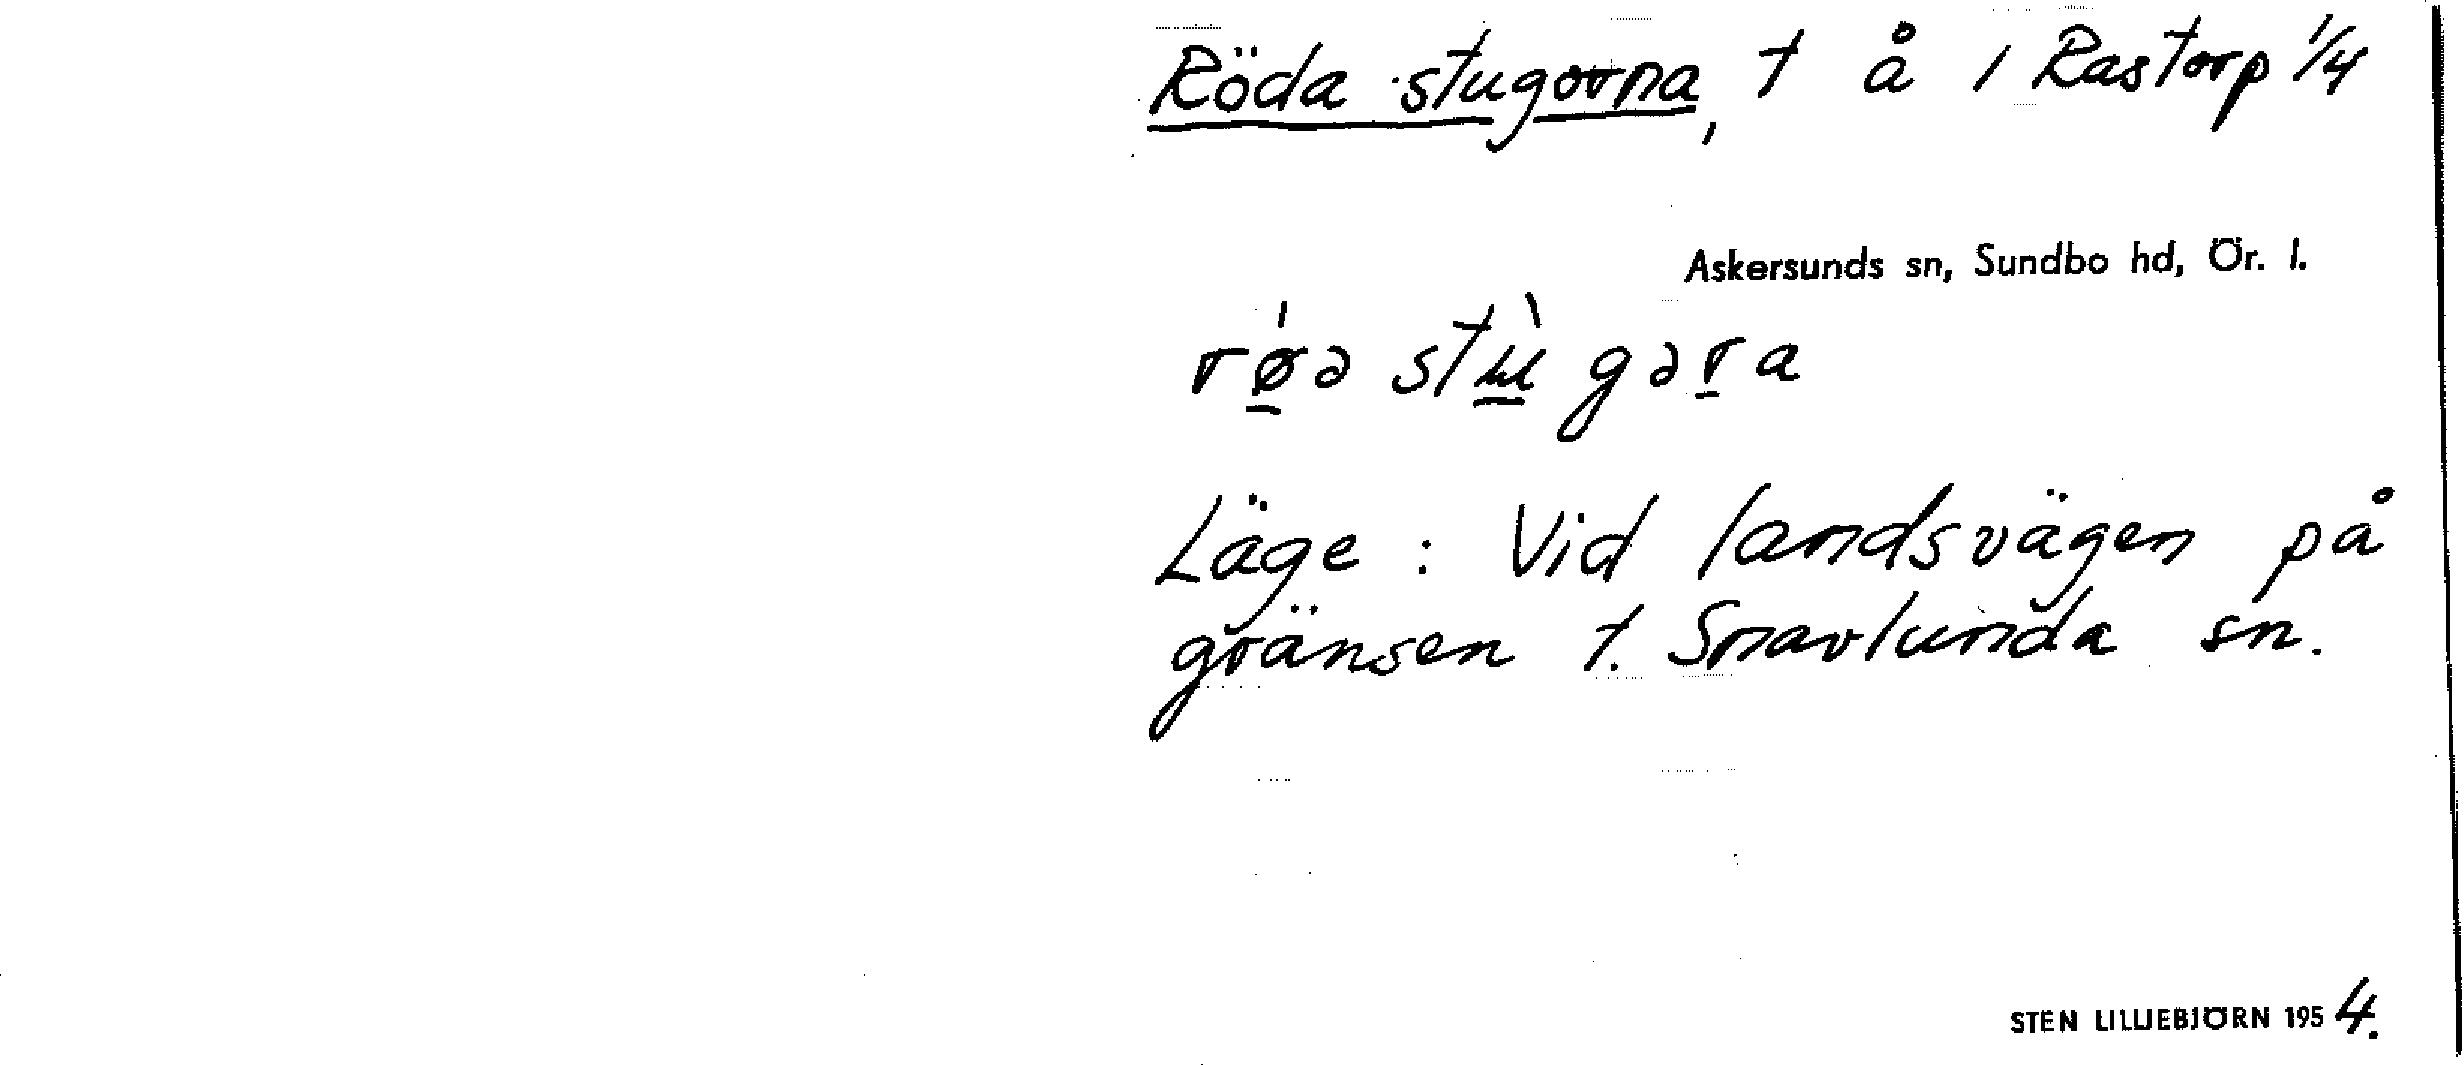 Röda stugorna, t å i Rastorp 1/4
Askersunds sn, Sundbo hd, Ör. l.
rǿ̱ə stù̱gəṟa
Läge : Vid landsvägen på
gränsen t. Snavlunda sn.
STEN LILLIEBJÖRN 1954.